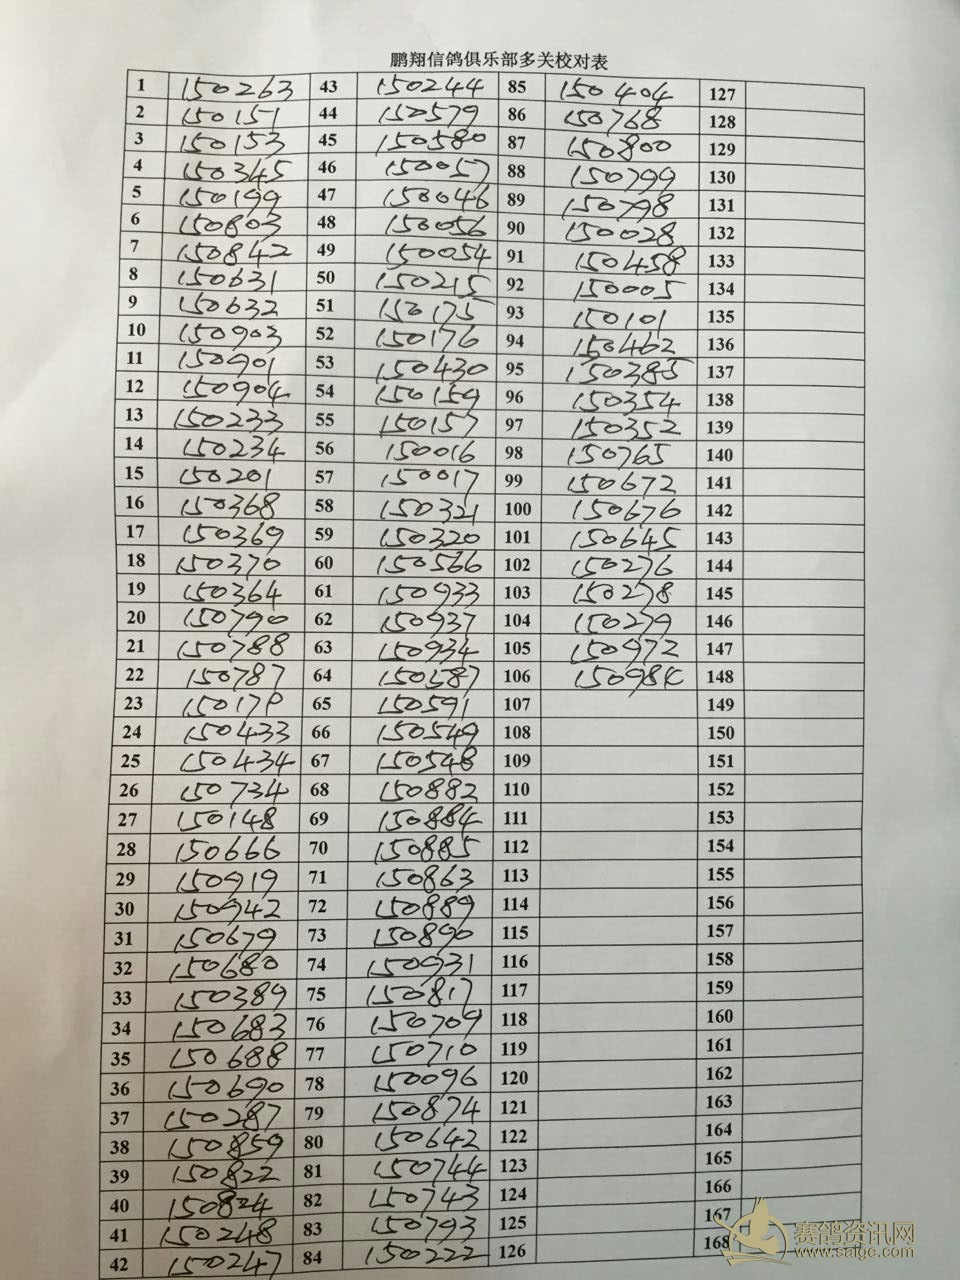 鹏翔信鸽俱乐部多关校对表
1 150263 43 150244 85 150404 127
2 150151 44 150579 86 150768 128
3 150153 45 150580 87 150800 129
4 150345 46 150057 88 150799 130
5 150199 47 150046 89 150798 131
6 150803 48 150056 90 150028 132
7 150842 49 150054 91 150458 133
8 150631 50 150215 92 150005 134
9 150632 51 150175 93 150101 135
10 150903 52 150176 94 150462 136
11 150901 53 150430 95 150385 137
12 150904 54 150159 96 150354 138
13 150233 55 150157 97 150352 139
14 150234 56 150016 98 150765 140
15 150201 57 150017 99 150672 141
16 150368 58 150321 100 150676 142
17 150369 59 150320 101 150645 143
18 150370 60 150566 102 150276 144
19 150364 61 150933 103 150278 145
20 150790 62 150937 104 150279 146
21 150788 63 150934 105 150972 147
22 150787 64 150587 106 148
23 65 150591 107 149
24 150433 66 150549 108 150
25 150434 67 150548 109 151
26 150734 68 150882 110 152
27 150148 69 150884 111 153
28 150666 70 150885 112 154
29 150919 71 150863 113 155
30 150942 72 150889 114 156
31 150679 73 150890 115 157
32 150680 74 150931 116 158
33 150389 75 150817 117 159
34 150683 76 150709 118 160
35 150688 77 150710 119 161
36 150690 78 150096 120 162
37 150287 79 150874 121 163
38 150859 80 150642 122 164
39 150822 81 150744 123 165
40 150824 82 150743 124 166
41 150248 83 150793 125 167
42 150247 84 150222 126 168
赛鸽资讯网
www.saige.com